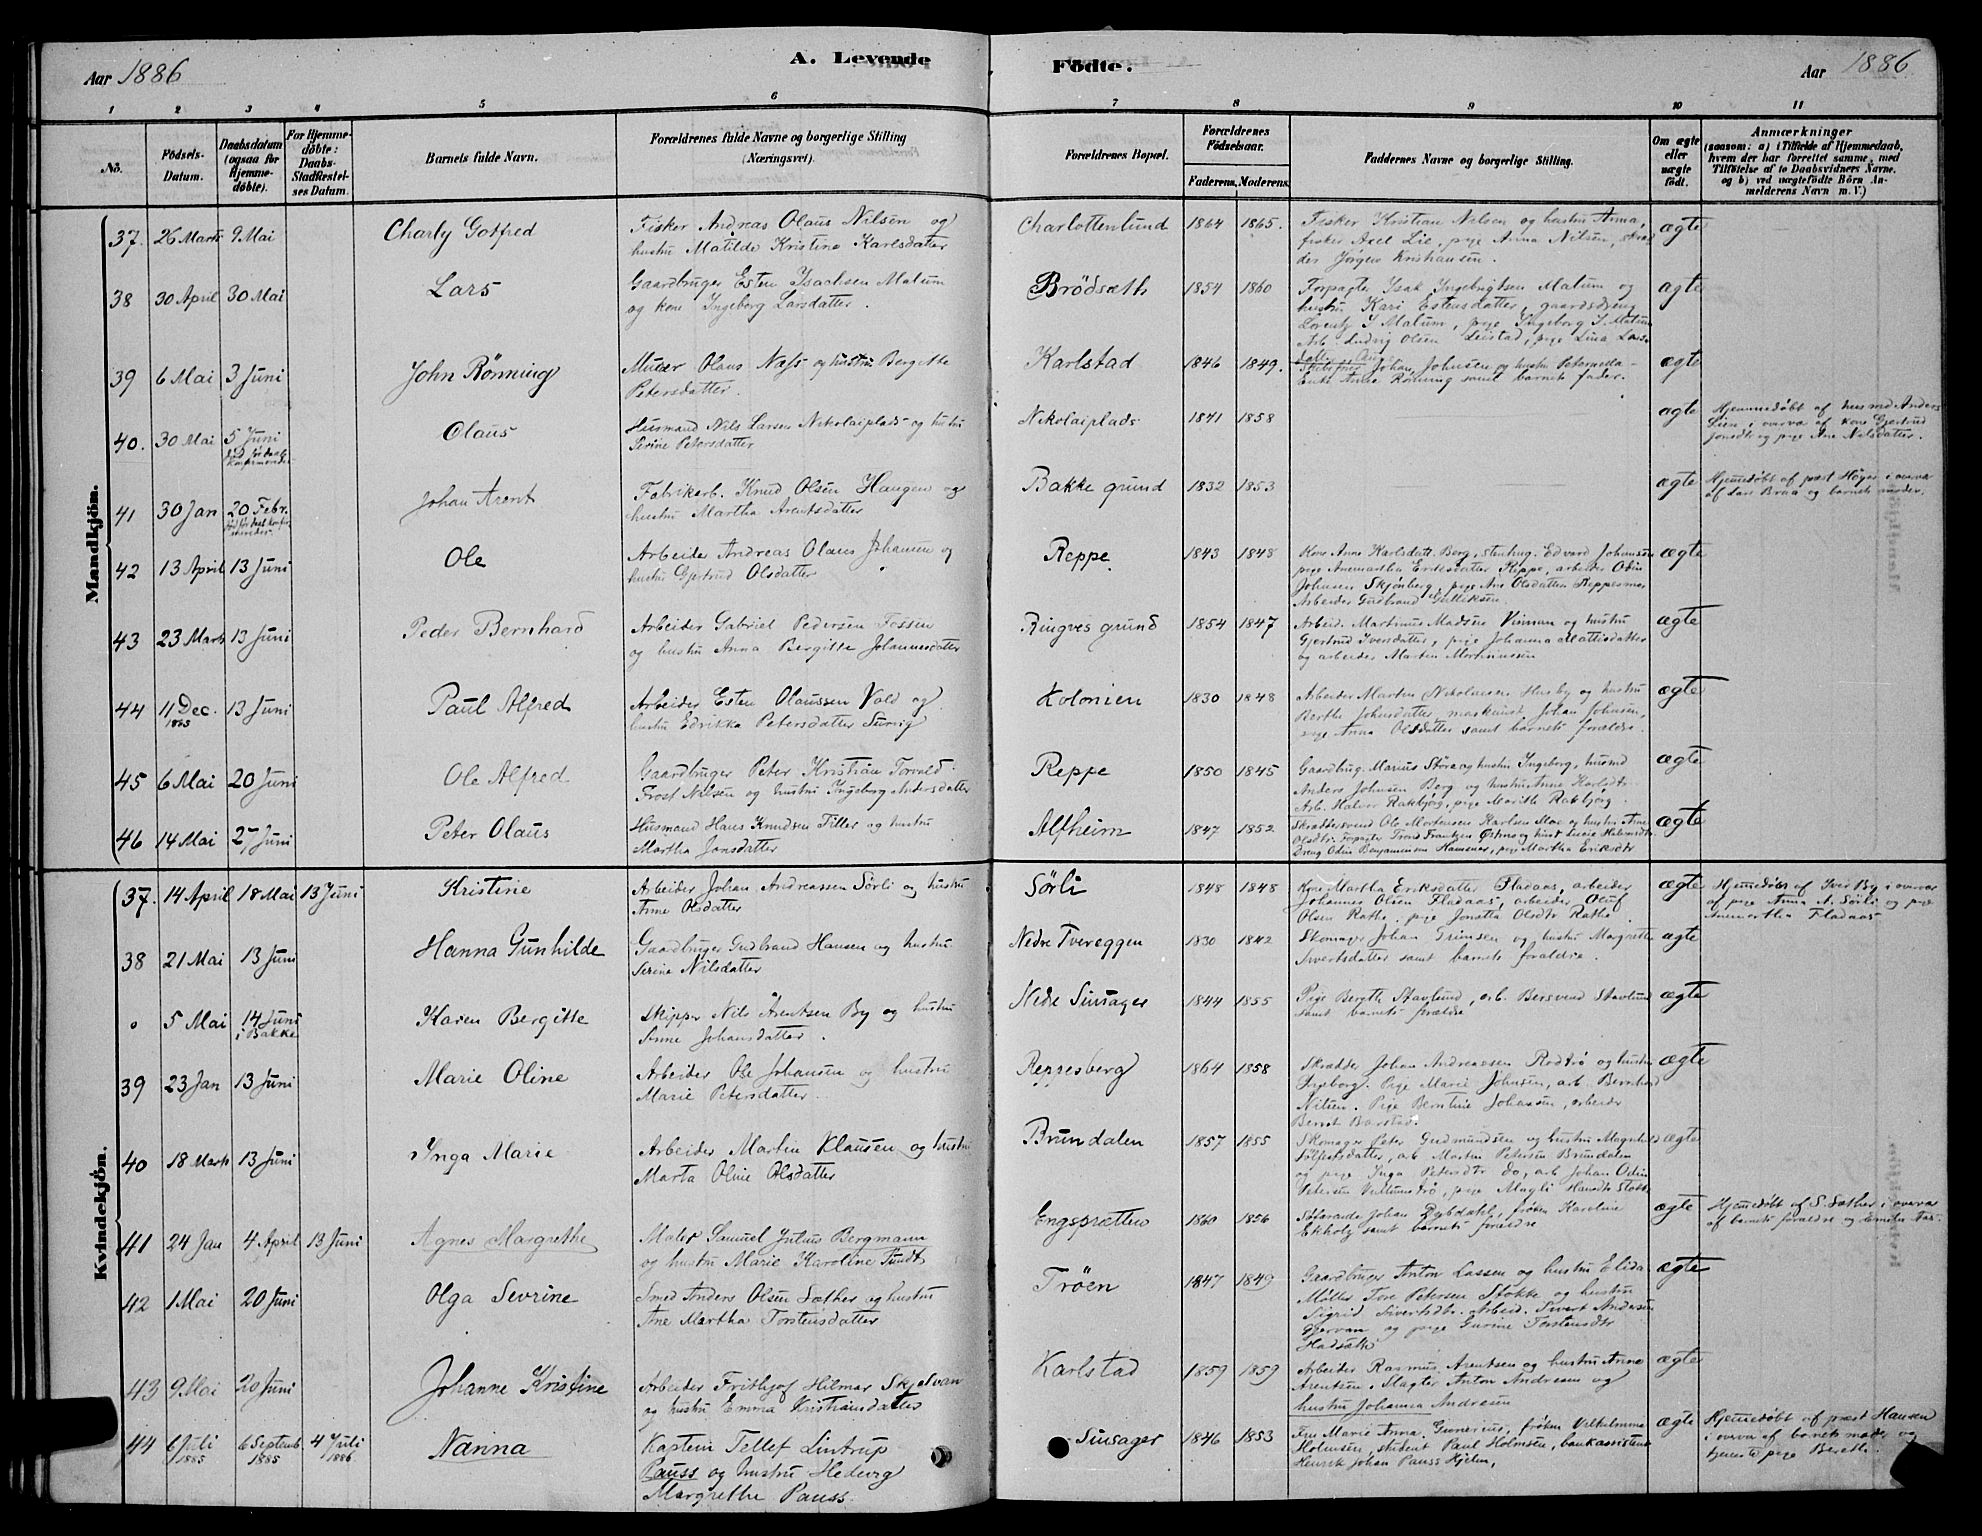 Aar 1886
A. Levende
Födte.
Aar 1886
1 2 3 4 5 6 7 8 9 10 11
No.
Födsels-Datum.
Daabsdatum (ogsaa for Hjemme-döbte).
For Hjemme-döbte: Daabs-Stadfæstel-ses Datum.
Barnets fulde Navn.
Forældrenes fulde Navne og borgerlige Stilling (Næringsvei).
Forældrenes Bopæl.
Forældrenes Födselsaar.
Faderens. Moderens.
Faddernes Navne og borgerlige Stilling.
Om ægte eller uægte födt.
Anmærkninger
(saasom: a) i Tilfælde af Hjemmedaab, hvem der har forrettet samme, med Tilföielse af to Daabsvidners Navne. og b) ved uægtefödte Börn An-melderens Navn m. V.)
Mandkjön.
37. 26 Marts 9 Mai Charly Gotfred Fisker Andreas Olaus Nilsen og Charlottenlund 1864 1865. Fisker Kristian Nilsen og hustru Anna, ægte
hustru Matilde Kristine Karlsdatter fisker Axel Lie, pige Anna Nilsen, skræd
der Jörgen Kristiansen.
38 30 April 30 Mai Lars Gaardbruger Esten Isachsen Malum Brödsæth 1854 1860 Forpagter Isak Ingebrigtsen Malum og ægte
og kone Ingeborg Larsdatter. hustru Kari Estensdatter, gaardsdreng
Lorentz I Malum, pige Ingeborg I. Malum
Arb. Ludvig Olsen Leistad, pige Lina Lars
datter
39 6 Mai 3 Juni John Rönning Murer Olaus Næss og hustru Bergitte Karlstad 1846 1849. Johan Johnsen og hustru Peternella ægte
Petersdatter. Enke Anne Rönning samt barnets fader.
40. 30 Mai 5 Juni Olaus Husmand Nils Larsen Nikolaiplads og hustru Nikolaiplads 1841 1858 ægte Hjemmedöbt af husmd Anders
Serine Petersdatter Lien, overvær af kone Gjertrud
Jonsdtr og pige Ane Nilsdatter.
41 30 Jan 20 Febr. Johan Arent Fabrikarb. Knud Olsen Haugen og Bakke grund 1832 1853 ægte Hjemmedöbt af præst Höyer i overvær
hustru Martha Arentsdatter af Lars Braa og barnets moder.
42 13 April 13 Juni Ole Arbeider Andreas Olaus Johansen og Reppe 1843 1848 Kone Anne Karlsdatt. Berg, stenhug. Edvard Johansen ægte
hustru Gjertrud Olsdatter pige Anemartha Eriksdatter Reppe, arbeider Odin
Johnsen Skjönberg, pige Ane Olsdatter Reppesmo
Arbeider Gudbrand Gulliksen
43 23 Marts 13 Juni Peder Bernhard Arbeider Gabriel Pedersen Fossen Ringves grund 1854 1847 Arbeid. Martinus Madsen Vinnan og hustru ægte
og hustru Anna Bergitte Johannesdatter Gjertrud Iversdatter, pige Johanna Mattisdatter
og arbeider Martin Martinussen
44 11 Dec. 1885 13 Juni Paul Alfred Arbeider Esten Olaussen Vold og Kolonien 1830 1848 Arbeider Martin Nikolaisen Husby og hustru ægte
hustru Edrikka Petersdatter Berthe Johnsdatter, maskinist Johan Johnsen,
pige Anna Olsdatter samt barnets forældre.
45 6 Mai 20 Juni Ole Alfred Gaardbruger Peter Kristian Torvald Reppe 1850 1845 Gaardbrug. Marius Störe og hustru Ingeborg, husmd ægte
Frost Nilsen og hustru Ingeborg Andersdatter Anders Johnsen Berg og hustru Anne Karlsdtr
Arb. Halvor Rakbjörg, pige Marith Rakbjörg.
46 14 Mai 27 Juni Peter Olaus Husmand Hans Knudsen Tiller og hustru Alfheim 1847 1852 Skræddersvend Ole Mortensen Karlsen Moe og hustru Ane ægte
Martha Jonsdatter Olsdtr. Forpagter Trond Frantzen Östmo og hust Lucie Halvorsdtr.
Dreng Odin Benjaminsen Hansenes, pige Martha Eriksdtr
Kvindekjön.
37. 14 April 18 Mai 13 Juni Kristine Arbeider Johan Andreassen Sörli og hustru Sörli 1848 1848 Kone Martha Eriksdatter Fladaas, arbeider ægte Hjemmedöbt af Iver By i overvær
Anne Olsdatter Johannes Olsen Fladaas, arbeider Oluf af pige Anna A. Sörli og pige
Olsen Rathe, pige Jonetta Olsdtr Rathe. Anemartha Fladaas
38 21 Mai 13 Juni Hanna Gunhilde Gaardbruger Gudbrand Hansen og hustru Nedre Tvereggen 1830 1842 Skomager Johan Trimsen og hustru Margrethe ægte
Serine Nilsdatter Sivertsdatter samt barnets forældre.
0 5 Mai 14 Juni i Bakke Karen Bergitte Skipper Nils Arentsen By og hustru Nedre Sinsager 1844 1855 Pige Berith Stavlund, arb. Bersvend Stavlund ægte
Anne Johansdatter. samt barnets forældre
39 23 Jan 13 Juni Marie Oline Arbeider Ole Johansen og hustru Reppesberg 1864 1858 Skrædder Johan Andreassen Rodtrö og hustru ægte
Marie Petersdatter. Ingeborg. Pige Marie Johnsen, arb. Bernhard
Nilsen. Pige Berntine Johansen, arbeider
Bernt Barstad.
40 18 Marts 13 Juni Inga Marie Arbeider Martin Klausen og hustru Brundalen 1857 1855 Skomager Peter Gudmundsen og hustru Magnhild ægte
Marta Oline Olsdatter arb Martin Petersen Brundalen
og pige Inga Petersdtr do, arb Johan Odin
Petersen pige Magli Hansdtr Stokke
41 24 Jan 4 April 13 Juni Agnes Margrethe Maler Samuel Julius Bergmann Engsprætten 1860 1856 Söfarende Johan Rydbdahl, fröken Karoline ægte Hjemmedöbt af S. Sæther i overvær
og hustru Marie Karoline Tundt Ekholg samt barnets forældre af barnets forældre og Emilie
42 1 Mai 20 Juni Olga Sevrine Smed Anders Olsen Sæther og hustru Tröen 1847 1849 Gaardbruger Anton Lassen og hustru Elida ægte
Ane Martha Torstensdatter Möller Tore Petersen Stokke og hustru
Sigrid Sivertsdtr. Arbeid. Sivert Andersen
Gjervan og pige Gurine Torstensdtr
Hadsæth
43 9 Mai 20 Juni Johanne Kristine Arbeider Frithjof Hilmar Skjelvan Karlstad 1859 1859 Arbeider Rasmus Arentsen og hustru Anne ægte
og hustru Emma Kristiansdatter Arentsen. Slagter Anton Andresen og
hustru Johanna Andresen
44 6 Juli 1885 6 Septemb 1885 4 Juli 1886 Nanna Kaptein Tellef Lintrup Sinsager 1846 1853 Fru Marie Anna Gunerius, fröken Vilhelmine ægte Hjemmedöbt af præst Hansen
Pauss og hustru Hedevig Holmsen, student Paul Holmsen, bankassistent i overvær af barnets moder og
Margrethe Pauss. Henrik Johan Pauss Hjelm, tjeneste pige Berethe